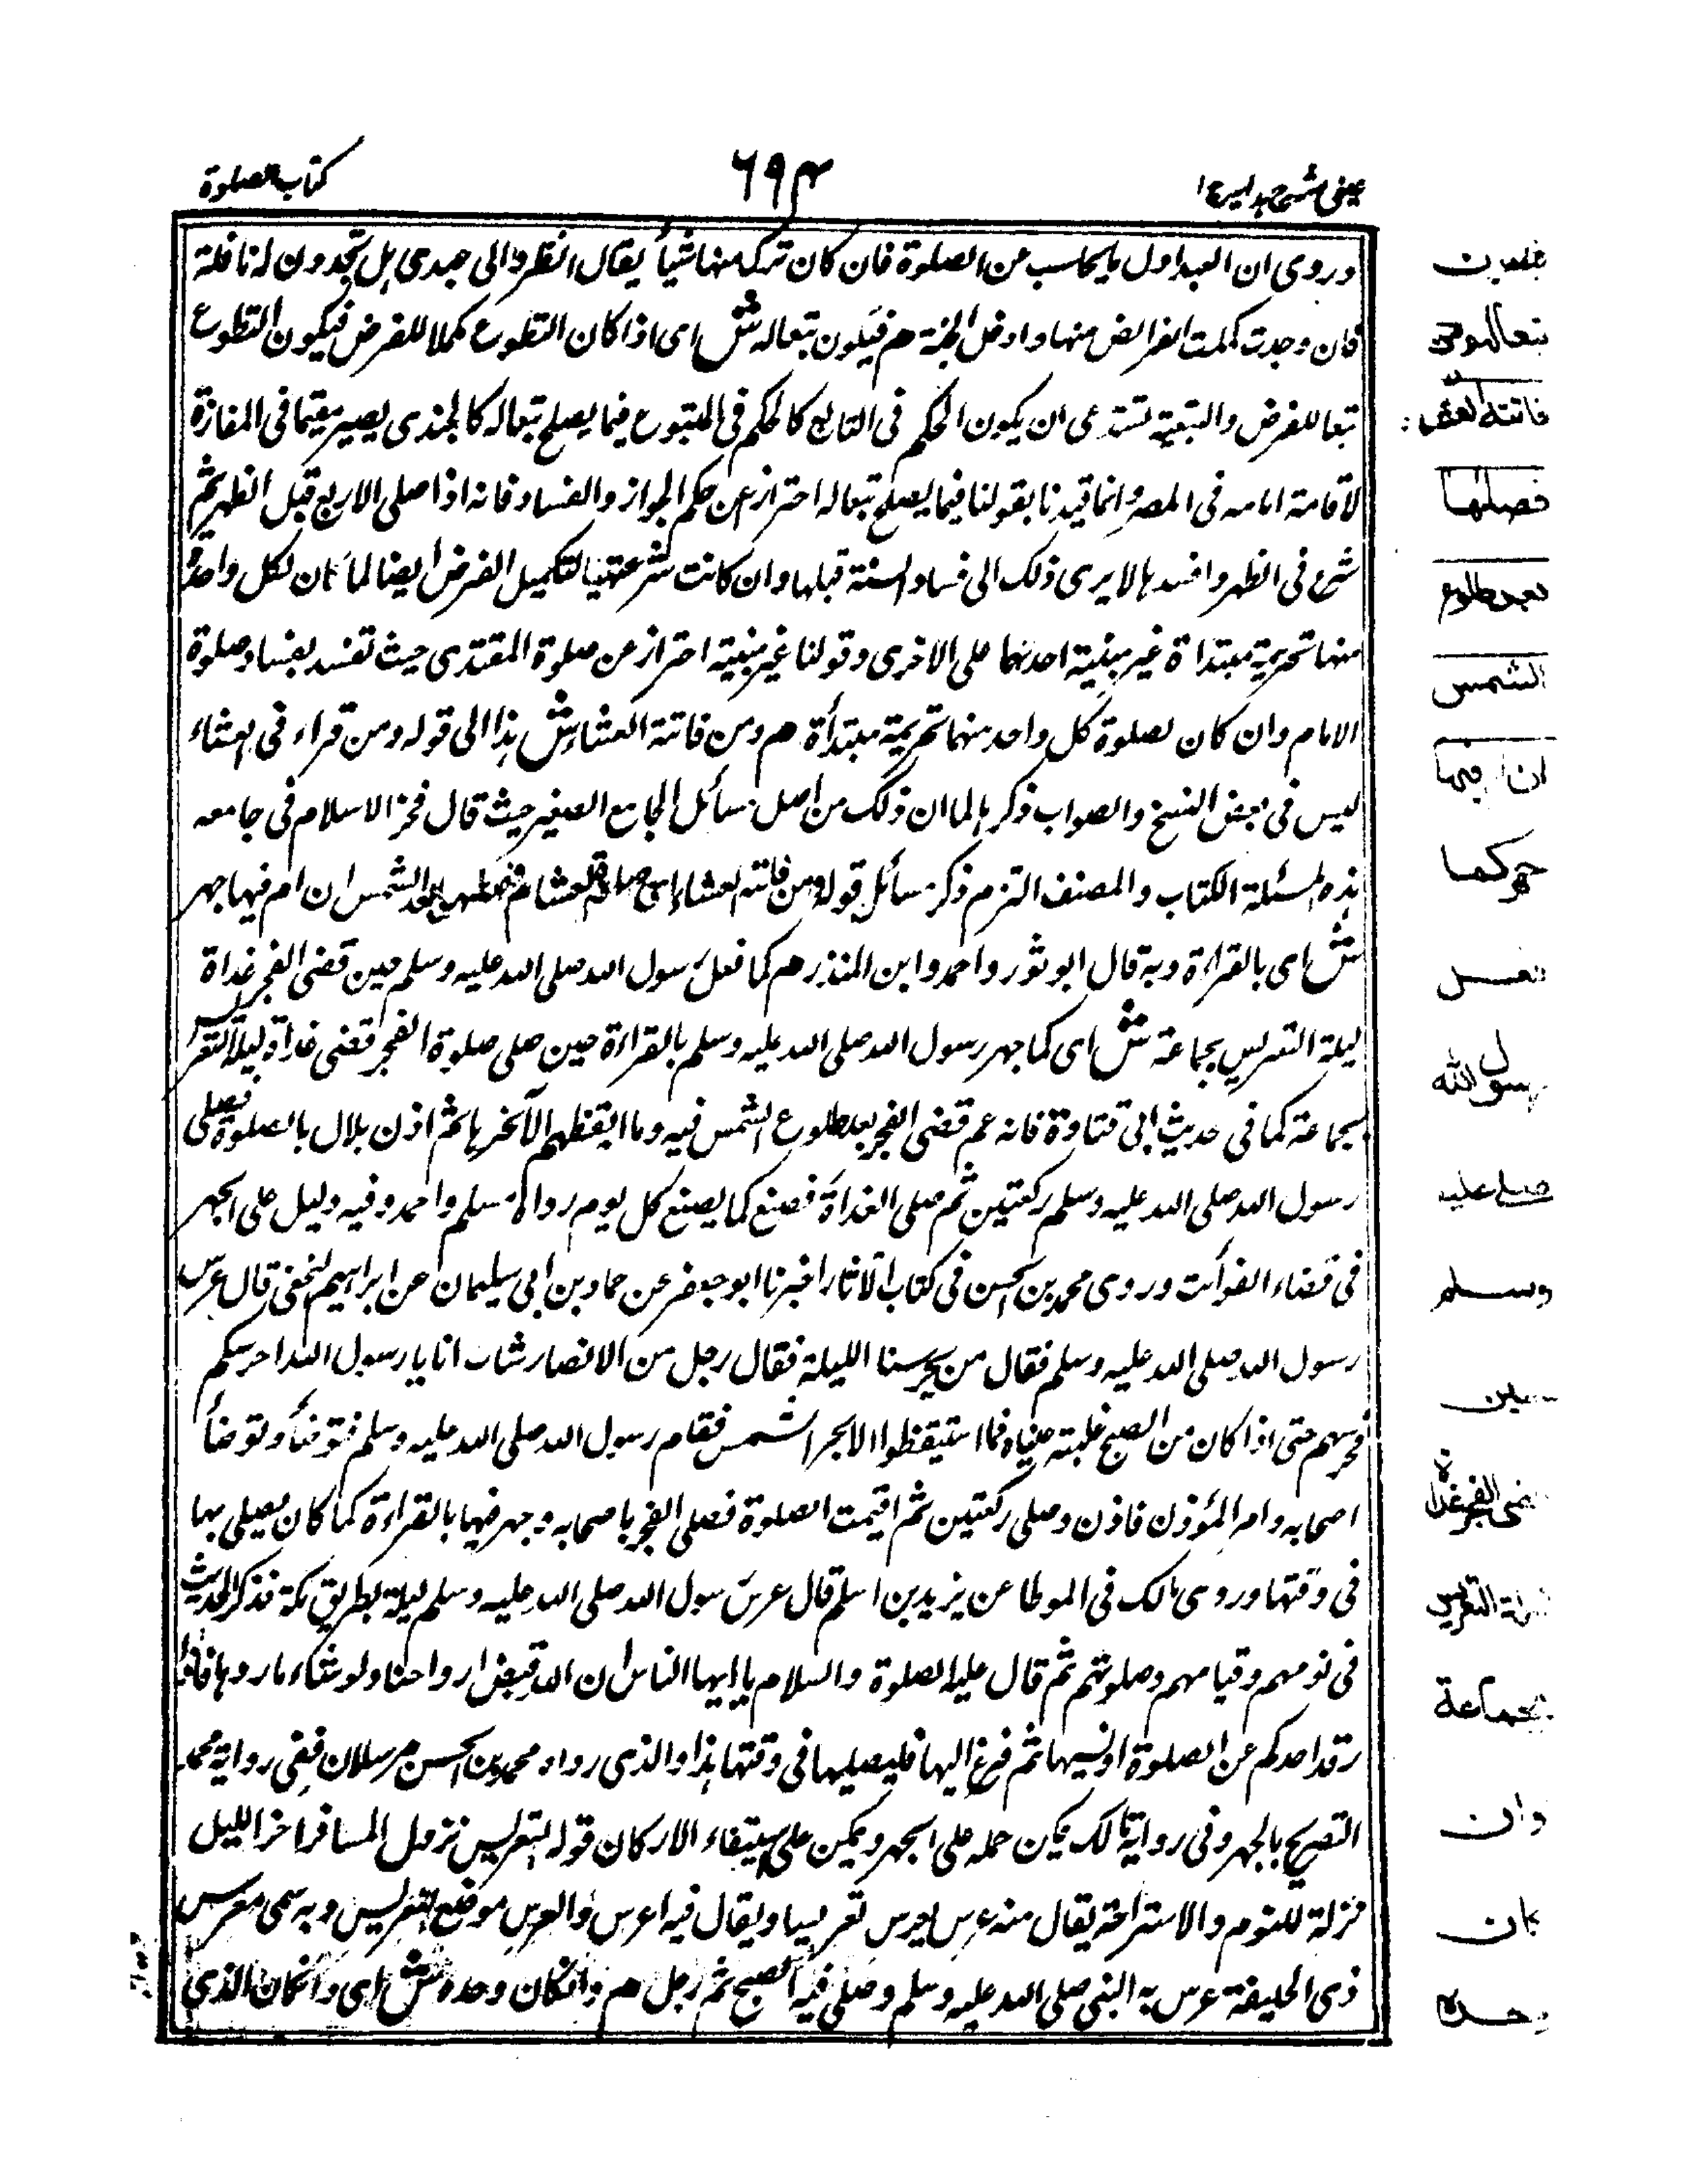 عینی شرح ہدایہ ج ا
٦٩٣
کتاب الصلوة
وروى ان العبد اول ما يحاسب عن الصلوة فان كان ترك منها شيأ يقال انظروا الى عبدى هل تجدون له نافلة
فان وجدت كملت الفرائض منها وادخل الجنة هم فيكون تبعا له ش اى اذا كان التطوع مكملا للفرض فيكون التطوع
تبعا للفرض والتبعية تستدعى ان يكون الحكم فى التابع كالحكم فى المتبوع فيما يصلح تبعا له كالجندى يصير مقيما فى المفازة
لاقامة امامه فى المصر وانما قيدنا بقولنا فيما يصلح تبعا له احترازا عن حكم الجواز والفساد فانه اذا صلى الاربع قبل الظهر ثم
شرع فى الظهر وافسدها لا يرى ذلك الى فساد السنة قبلها وان كانت شرعتها لتكميل الفرض ايضا لما ان لكل واحدة
منها تحريمة مبتداة غير مبنية احدهما على الاخرى وقولنا غير مبنية احتراز عن صلوة المقتدى حيث تفسد بفساد صلوة
الامام وان كان لصلوة كل واحد منهما تحريمة مبتدأة هم ومن فاتته العشاء ش هذا الى قوله ومن قراء فى العشاء
ليس فى بعض النسخ والصواب ذكرها لما ان ذلك من اصل مسائل الجامع الصغير حيث قال فخر الاسلام فى جامعه
هذه المسئلة الكتاب والمصنف التزم ذكر مسائل قوله ومن فاتته العشاء اى صلوة العشاء هم فصلها بعد الشمس ان ام فيها جهر
ش اى بالقراءة وبه قال ابو ثور واحمد وابن المنذر هم كما فعل رسول الله صلى الله عليه وسلم حين قضى الفجر غداة
ليلة التعريس بجماعة ش اى كما جهر رسول الله صلى الله عليه وسلم بالقراءة حين صلى صلوة الفجر قضى غداة ليلة التعريس
بجماعة كما فى حديث ابى قتادة فانه عم قضى الفجر بعد طلوع الشمس فيه وما ايقظهم الا حرها ثم اذن بلال بالصلوة فصلى
رسول الله صلى الله عليه وسلم ركعتين ثم صلى الغداة فصنع كما يصنع كل يوم رواه مسلم واحمد وفيه دليل على الجهر
فى قضاء الفوائت وروى محمد بن الحسن فى كتاب الآثار اخبرنا ابو جعفر عن حماد بن ابى سليمان عن ابراهيم النخعى قال عرس
رسول الله صلى الله عليه وسلم فقال من يحرسنا الليلة فقال رجل من الانصار شاب انا يا رسول الله احرسكم
فحرسهم حتى اذا كان من الصبح غلبته عيناه فما استيقظوا الا بحر الشمس فقام رسول الله صلى الله عليه وسلم فتوضأ وتوضأ
اصحابه وامر المؤذن فاذن وصلى ركعتين ثم اقيمت الصلوة فصلى الفجر باصحابه وجهر فيها بالقراءة كما كان يصلى بها
فى وقتها وروى مالك فى الموطا عن يزيد بن اسلم قال عرس رسول الله صلى الله عليه وسلم ليلة بطريق مكة فذكر الحديث
فى نومهم وقيامهم وصلوتهم ثم قال عليه الصلوة والسلام يا ايها الناس ان الله قبض ارواحنا ولو شاء ردها فاذا
رقد احدكم عن الصلوة او نسيها ثم فزع اليها فليصليها فى وقتها هذا والذى رواه محمد بن الحسن مرسلان ففى رواية محمد
التصريح بالجهر وفى رواية مالك يمكن حمله على الجهر ويمكن على استيفاء الاركان قوله التعريس نزول المسافر اخر الليل
نزلة للنوم والاستراحة يقال منه عرس يعرس تعريسا ويقال فيه اعرس والعرس موضع التعريس وبه سمى معرس
ذى الحليفة عرس به النبى صلى الله عليه وسلم وصلى فيه الصبح ثم رجل هم وان كان وحده ش اى وان كان الذى
تبعا له ومن
فاتته العشاء
فصلها
بعد طلوع
الشمس
ان ام فيها
جهر كما
فعل
رسول الله
صلى عليه
وسلم
حين
قضى الفجر غداة
ليلة التعريس
بجماعة
وان
كان
وحده